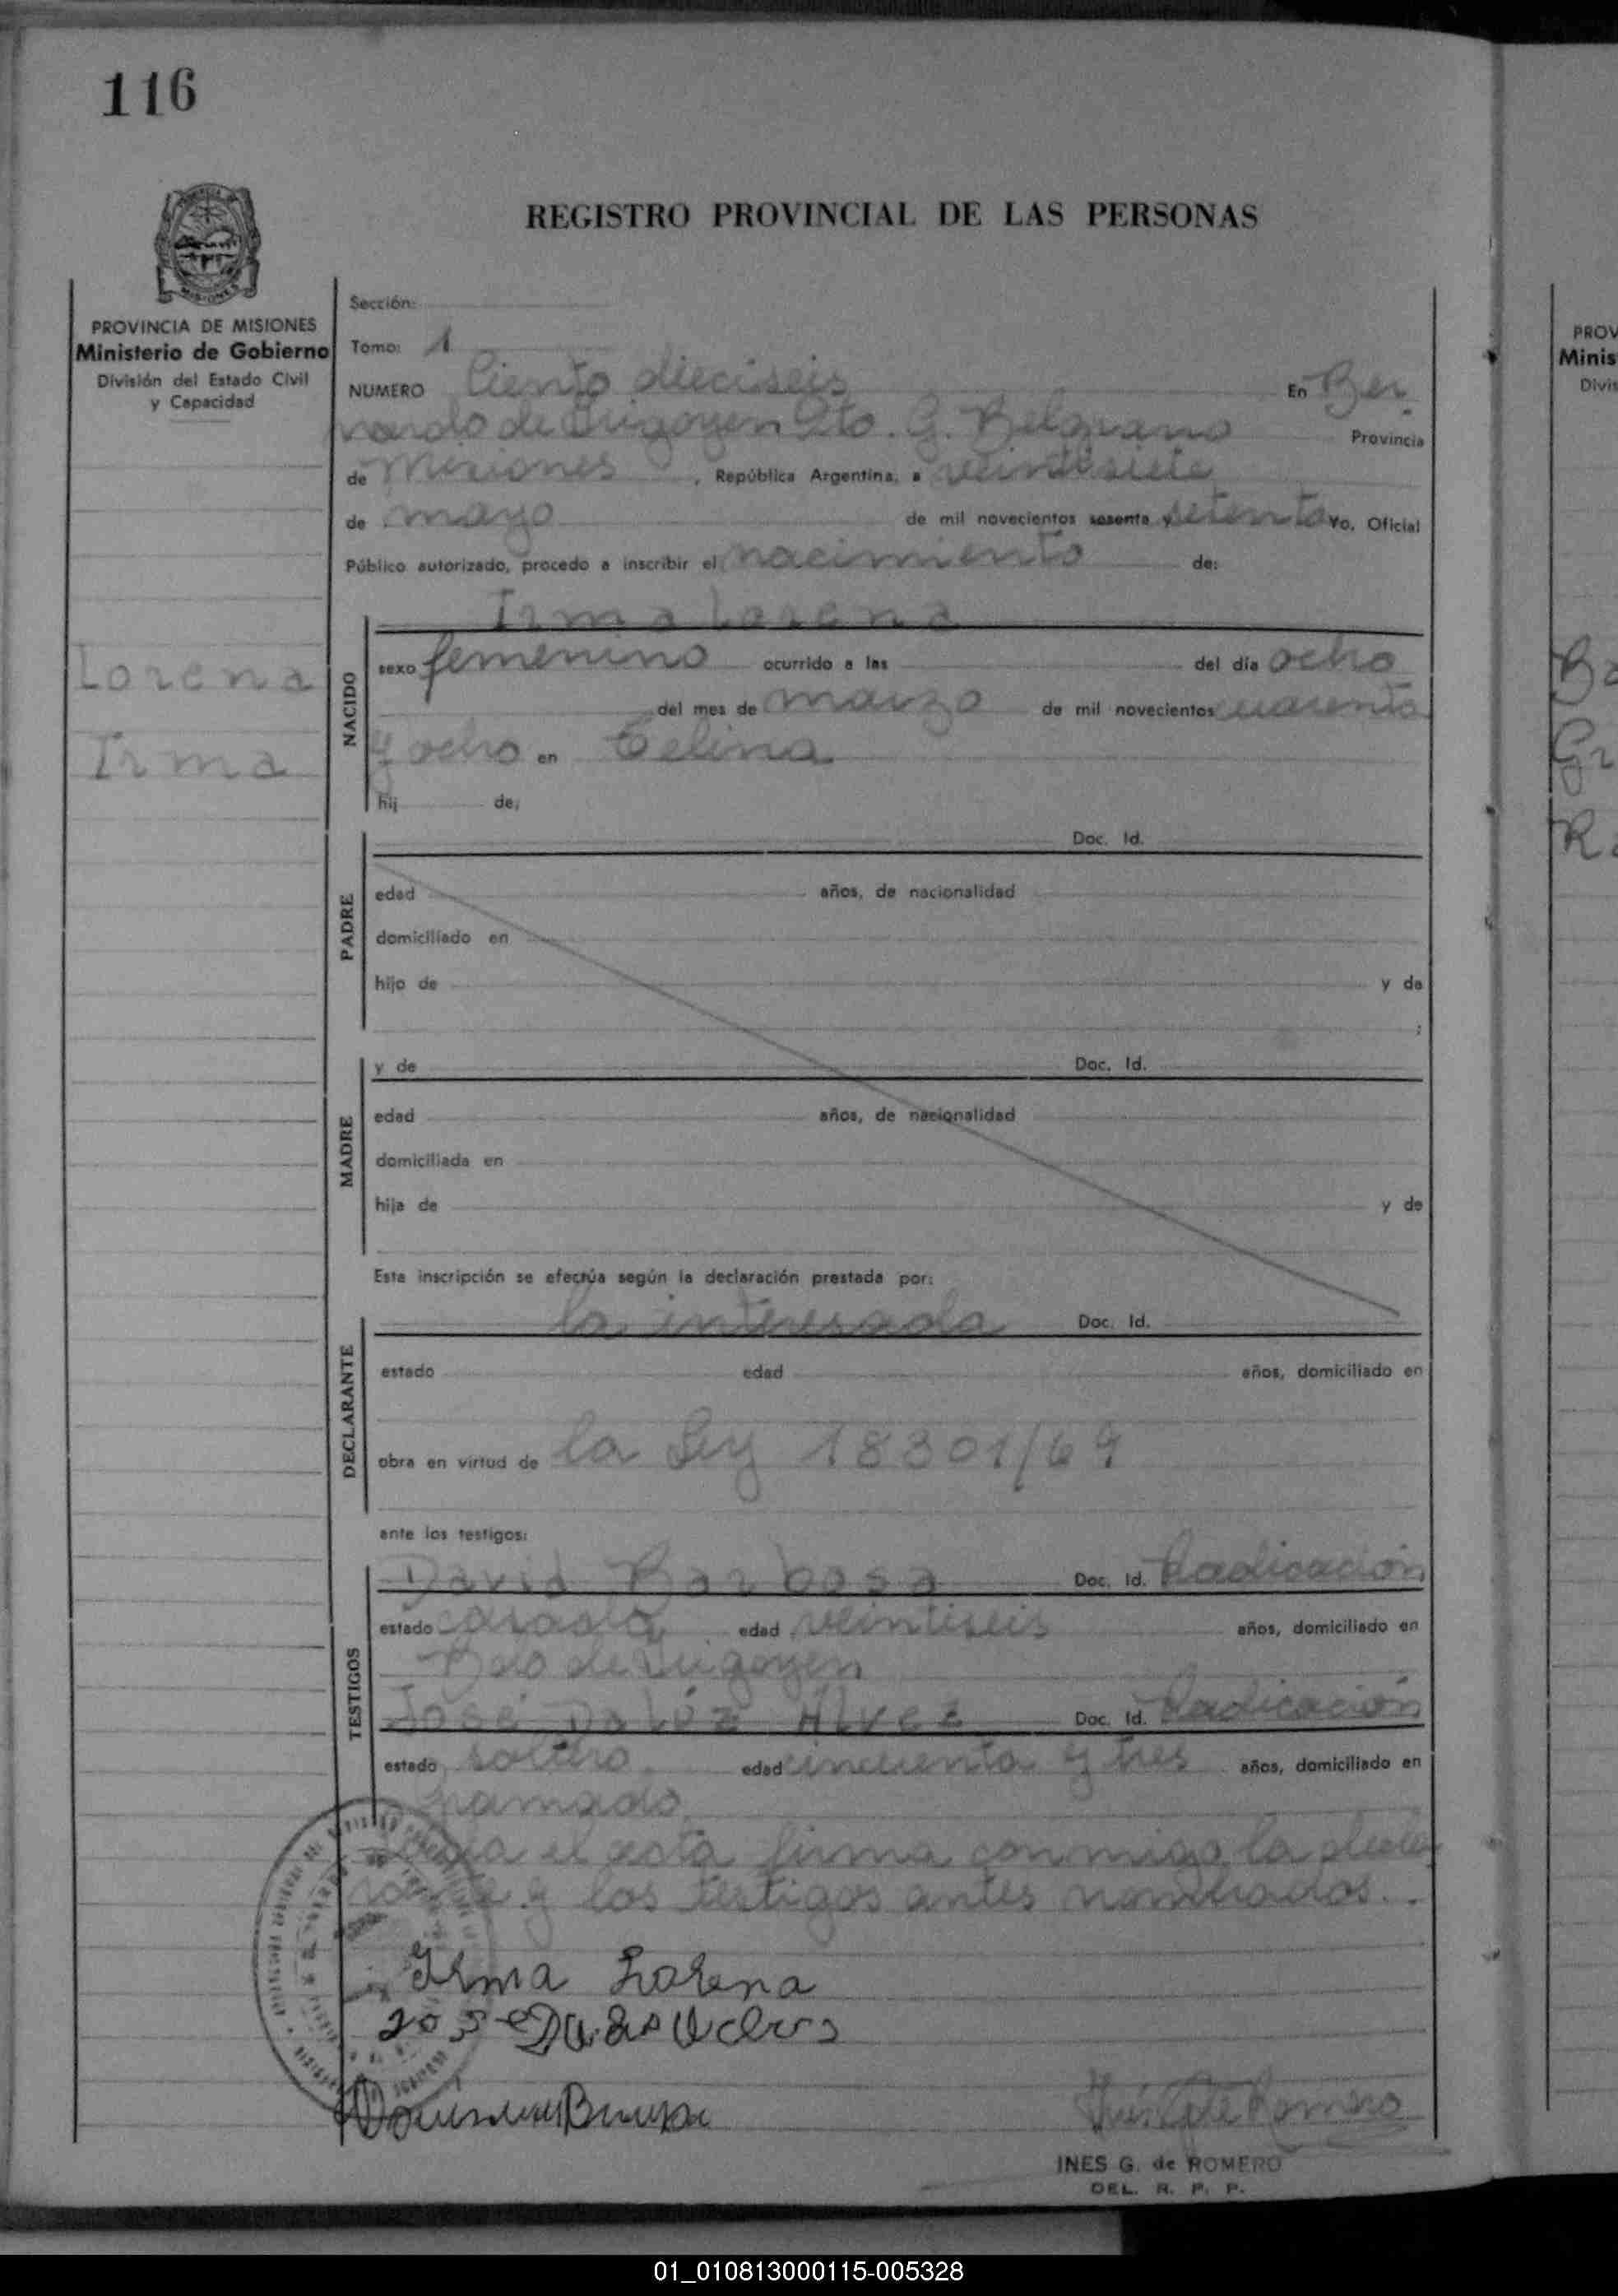 116
REGISTRO PROVINCIAL DE LAS PERSONAS
PROVINCIA DE MISIONES
Ministerio de Gobierno
División del Estado Civil
y Capacidad
Lorena
Irma
Sección:
Tomo: 1
NUMERO Ciento dieciseis En Ber
nardo de Irigoyen Dto. G. Belgrano Provincia
de Misiones, República Argentina, a veintisiete
de mayo de mil novecientos sesenta y setenta Yo, Oficial
Público autorizado, procedo a inscribir el nacimiento de:
Irma Lorena
NACIDO
sexo femenino ocurrido a las del día ocho
del mes de marzo de mil novecientos cuarenta
y ocho en Celina
hij de:
PADRE
Doc. Id.
edad años, de nacionalidad
domiciliado en
hijo de y de
;
MADRE
y de Doc. Id.
edad años, de nacionalidad
domiciliada en
hija de y de
Esta inscripción se efectúa según la declaración prestada por:
DECLARANTE
la interesada Doc. Id.
estado edad años, domiciliado en
obra en virtud de la Ley 18301/69
ante los testigos:
TESTIGOS
David Barbosa Doc. Id. Radicación
estado casado edad veintiseis años, domiciliado en
Bdo de Irigoyen
José Da Luz Alvez Doc. Id. Radicación
estado soltero edad cincuenta y tres años, domiciliado en
Gramado
el acta firma conmigo la decla
rante y los testigos antes nombrados.
Irma Lorena
José
INES G. de ROMERO
DEL. R. P. P.
PROV
Minis
Divis
Ba
Gr
R
01_010813000115-005328